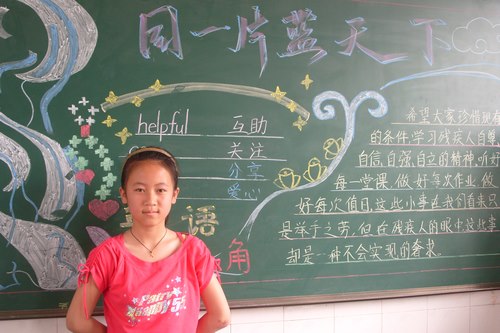 同一片蓝天下
helpful 互助
关注
分享
爱心
语
角
希望大家珍惜现有
的条件学习残疾人自尊,
自信,自强,自立的精神,听好
每一堂课,做好每次作业,做
好每次值日,这些小事在我们看来只
是举手之劳,但在残疾人的眼中这些事
却是一种不会实现的奢求。